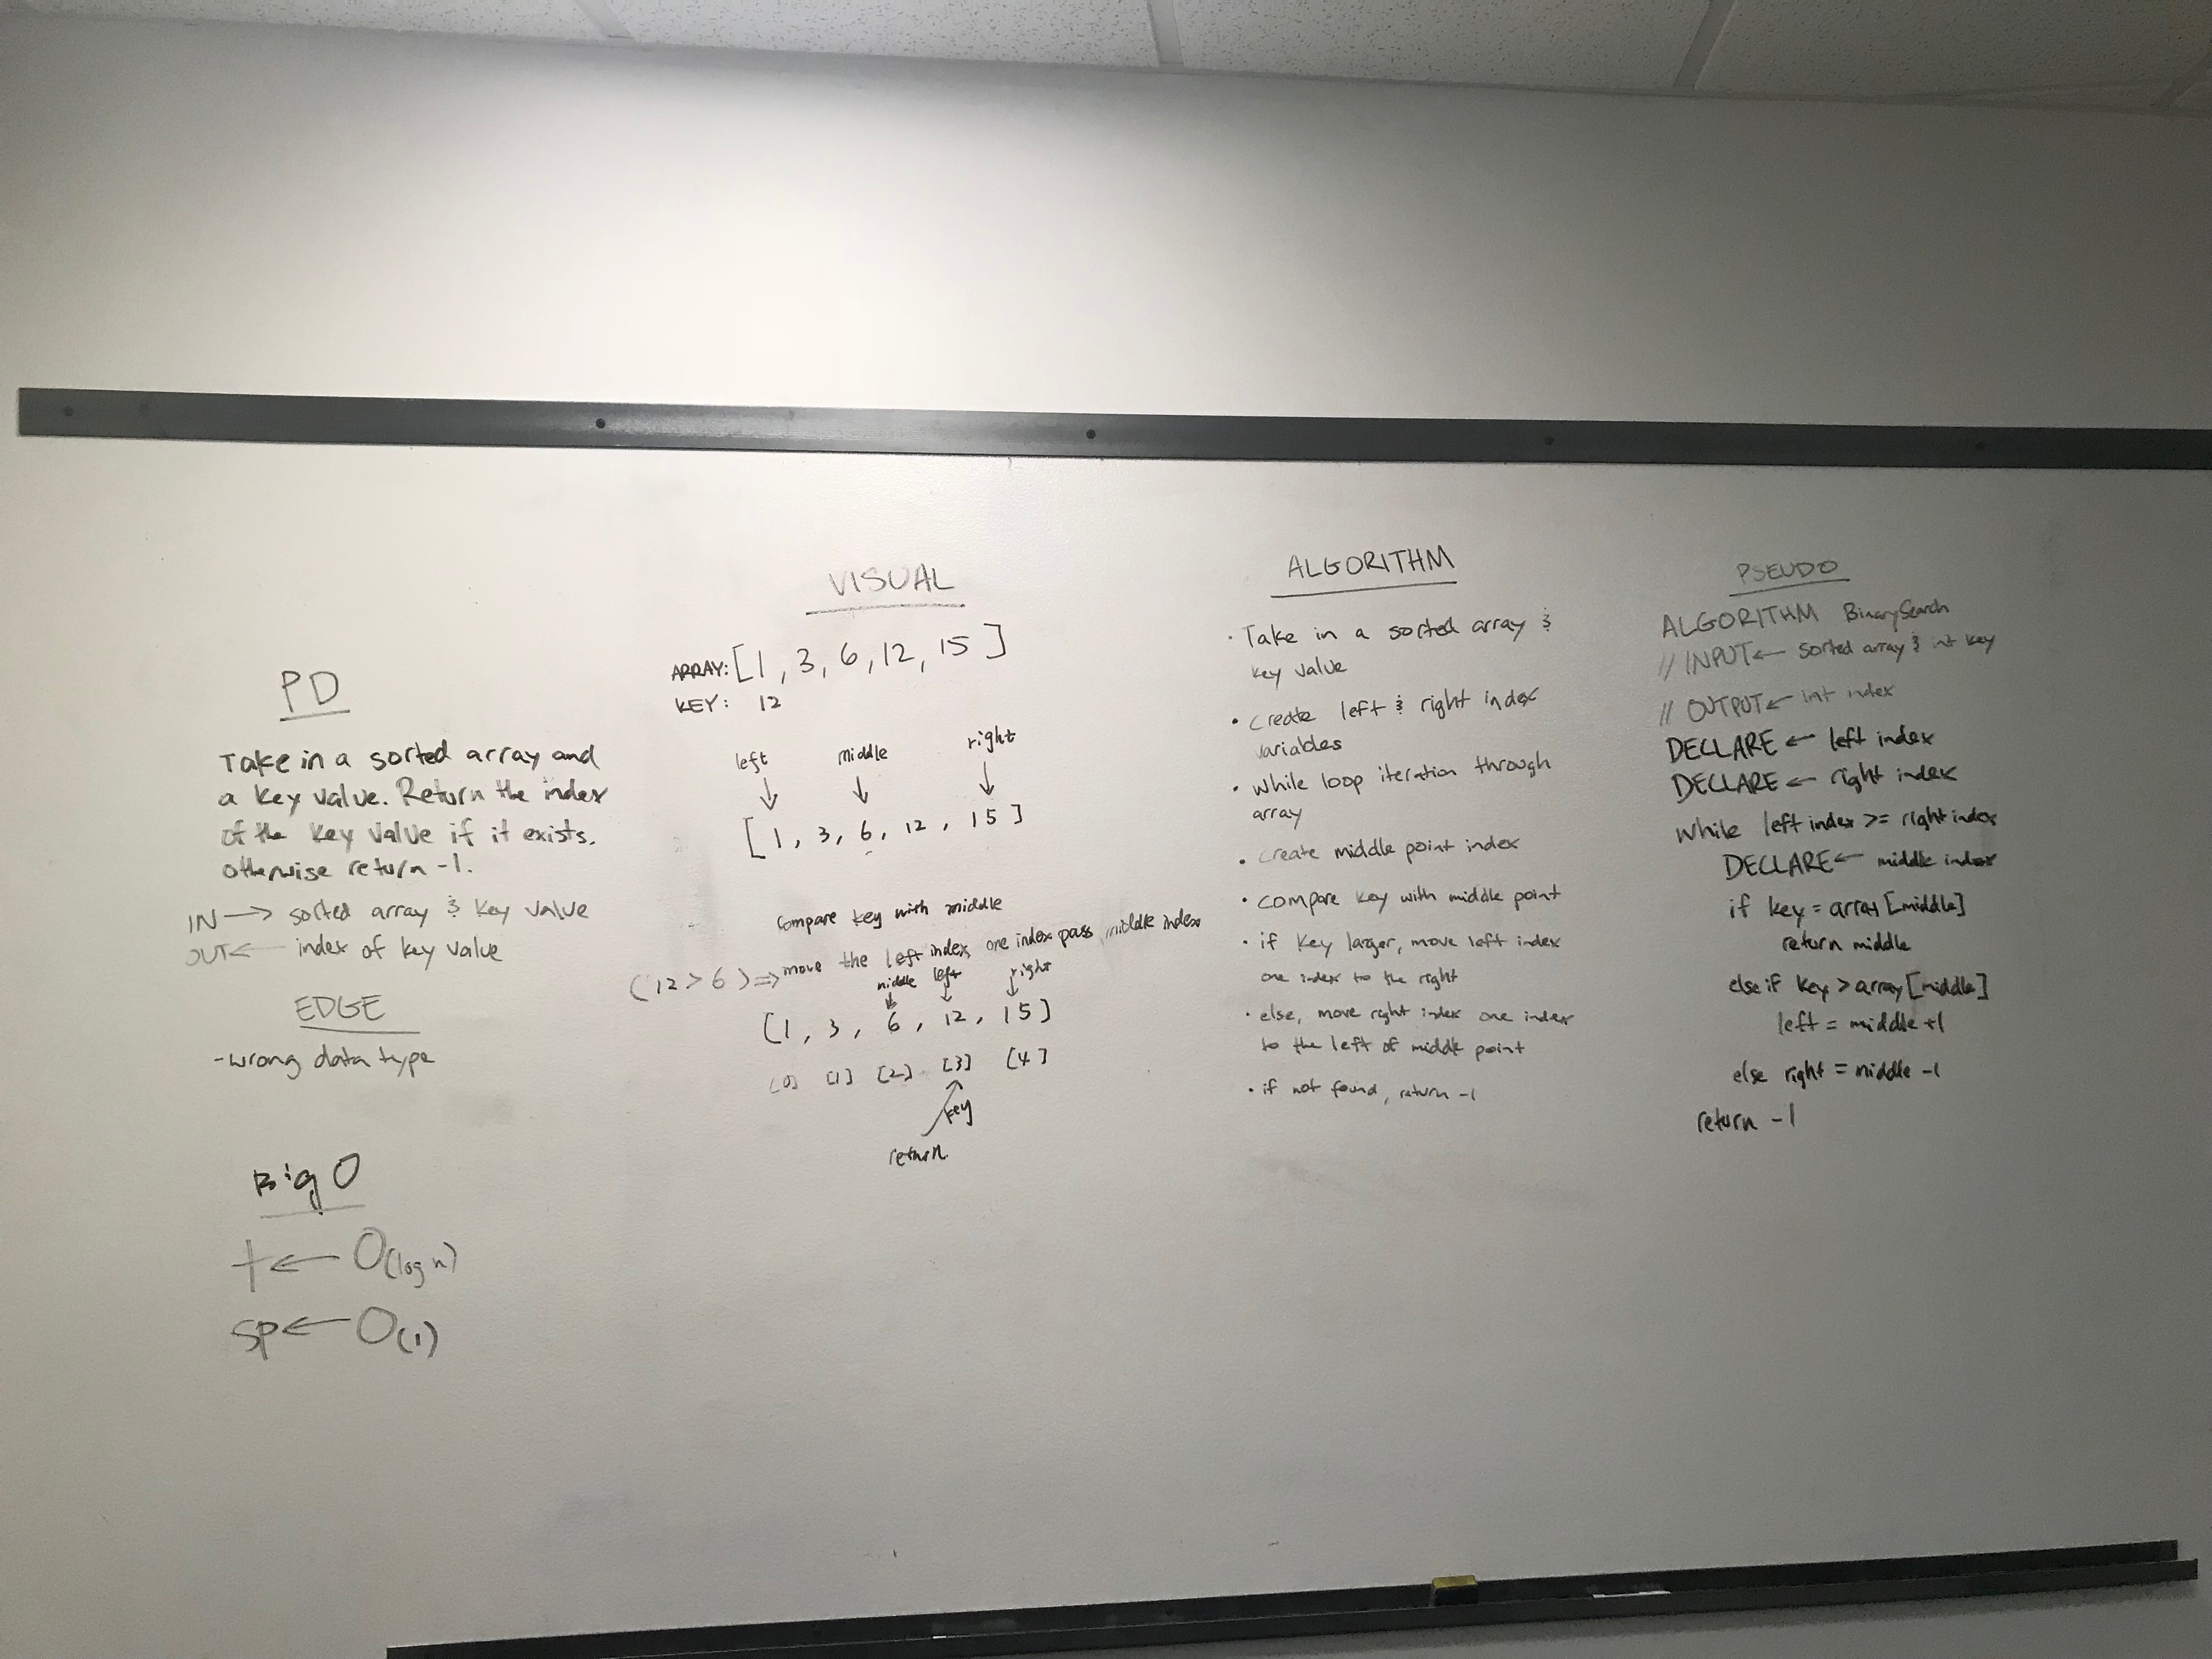 PD
Take in a sorted array and
a key value. Return the index
of the key value if it exists.
otherwise return -1.
IN → sorted array & key value
OUT ← index of key value
EDGE
-wrong data type
Big O
t ← O(log n)
sp ← O(1)
VISUAL
ARRAY: [1, 3, 6, 12, 15]
KEY: 12
left middle right
[1, 3, 6, 12, 15]
compare key with middle
(12 > 6) => move the left index, one index pass middle index
middle left right
[1, 3, 6, 12, 15]
[0] [1] [2] [3] [4]
key
return
ALGORITHM
· Take in a sorted array &
key value
· create left & right index
variables
· while loop iteration through
array
· create middle point index
· compare key with middle point
· if key larger, move left index
one index to the right
· else, move right index one index
to the left of middle point
· if not found, return -1
PSEUDO
ALGORITHM BinarySearch
// INPUT ← sorted array & int key
// OUTPUT ← int index
DECLARE ← left index
DECLARE ← right index
while left index >= right index
DECLARE ← middle index
if key = array[middle]
return middle
else if key > array[middle]
left = middle +1
else right = middle -1
return -1